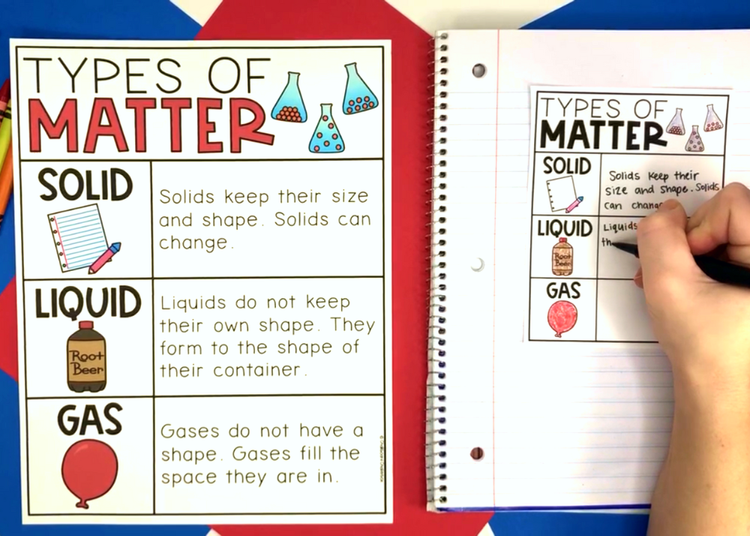 TYPES OF
MATTER
SOLID
Solids keep their size
and shape. Solids can
change.
LIQUID
Root
Beer
Liquids do not keep
their own shape. They
form to the shape of
their container.
GAS
Gases do not have a
shape. Gases fill the
space they are in.
TYPES OF
MATTER
SOLID
Solids keep their
size and shape. Solids
can change
LIQUID
Root
Beer
Liquids
th
GAS